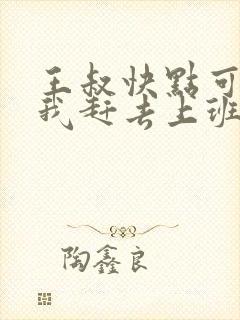 王叔快點可
我赶去上班
陶鑫良